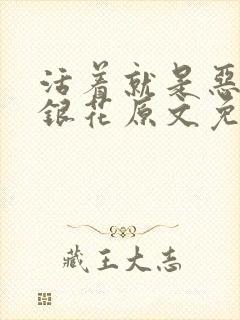 活着就是恶
银花原文免
藏王大志